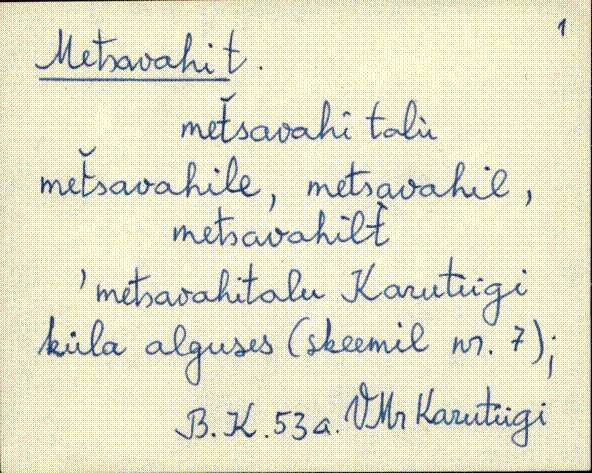 1
Metsavahi t.
met̆savahi talù
met̆savahile, metsavahil,
metsavahilt̀
'metsavahitalu Karutiigi
küla alguses (skeemil nr. 7);
B.K.53a. VMr Karutiigi